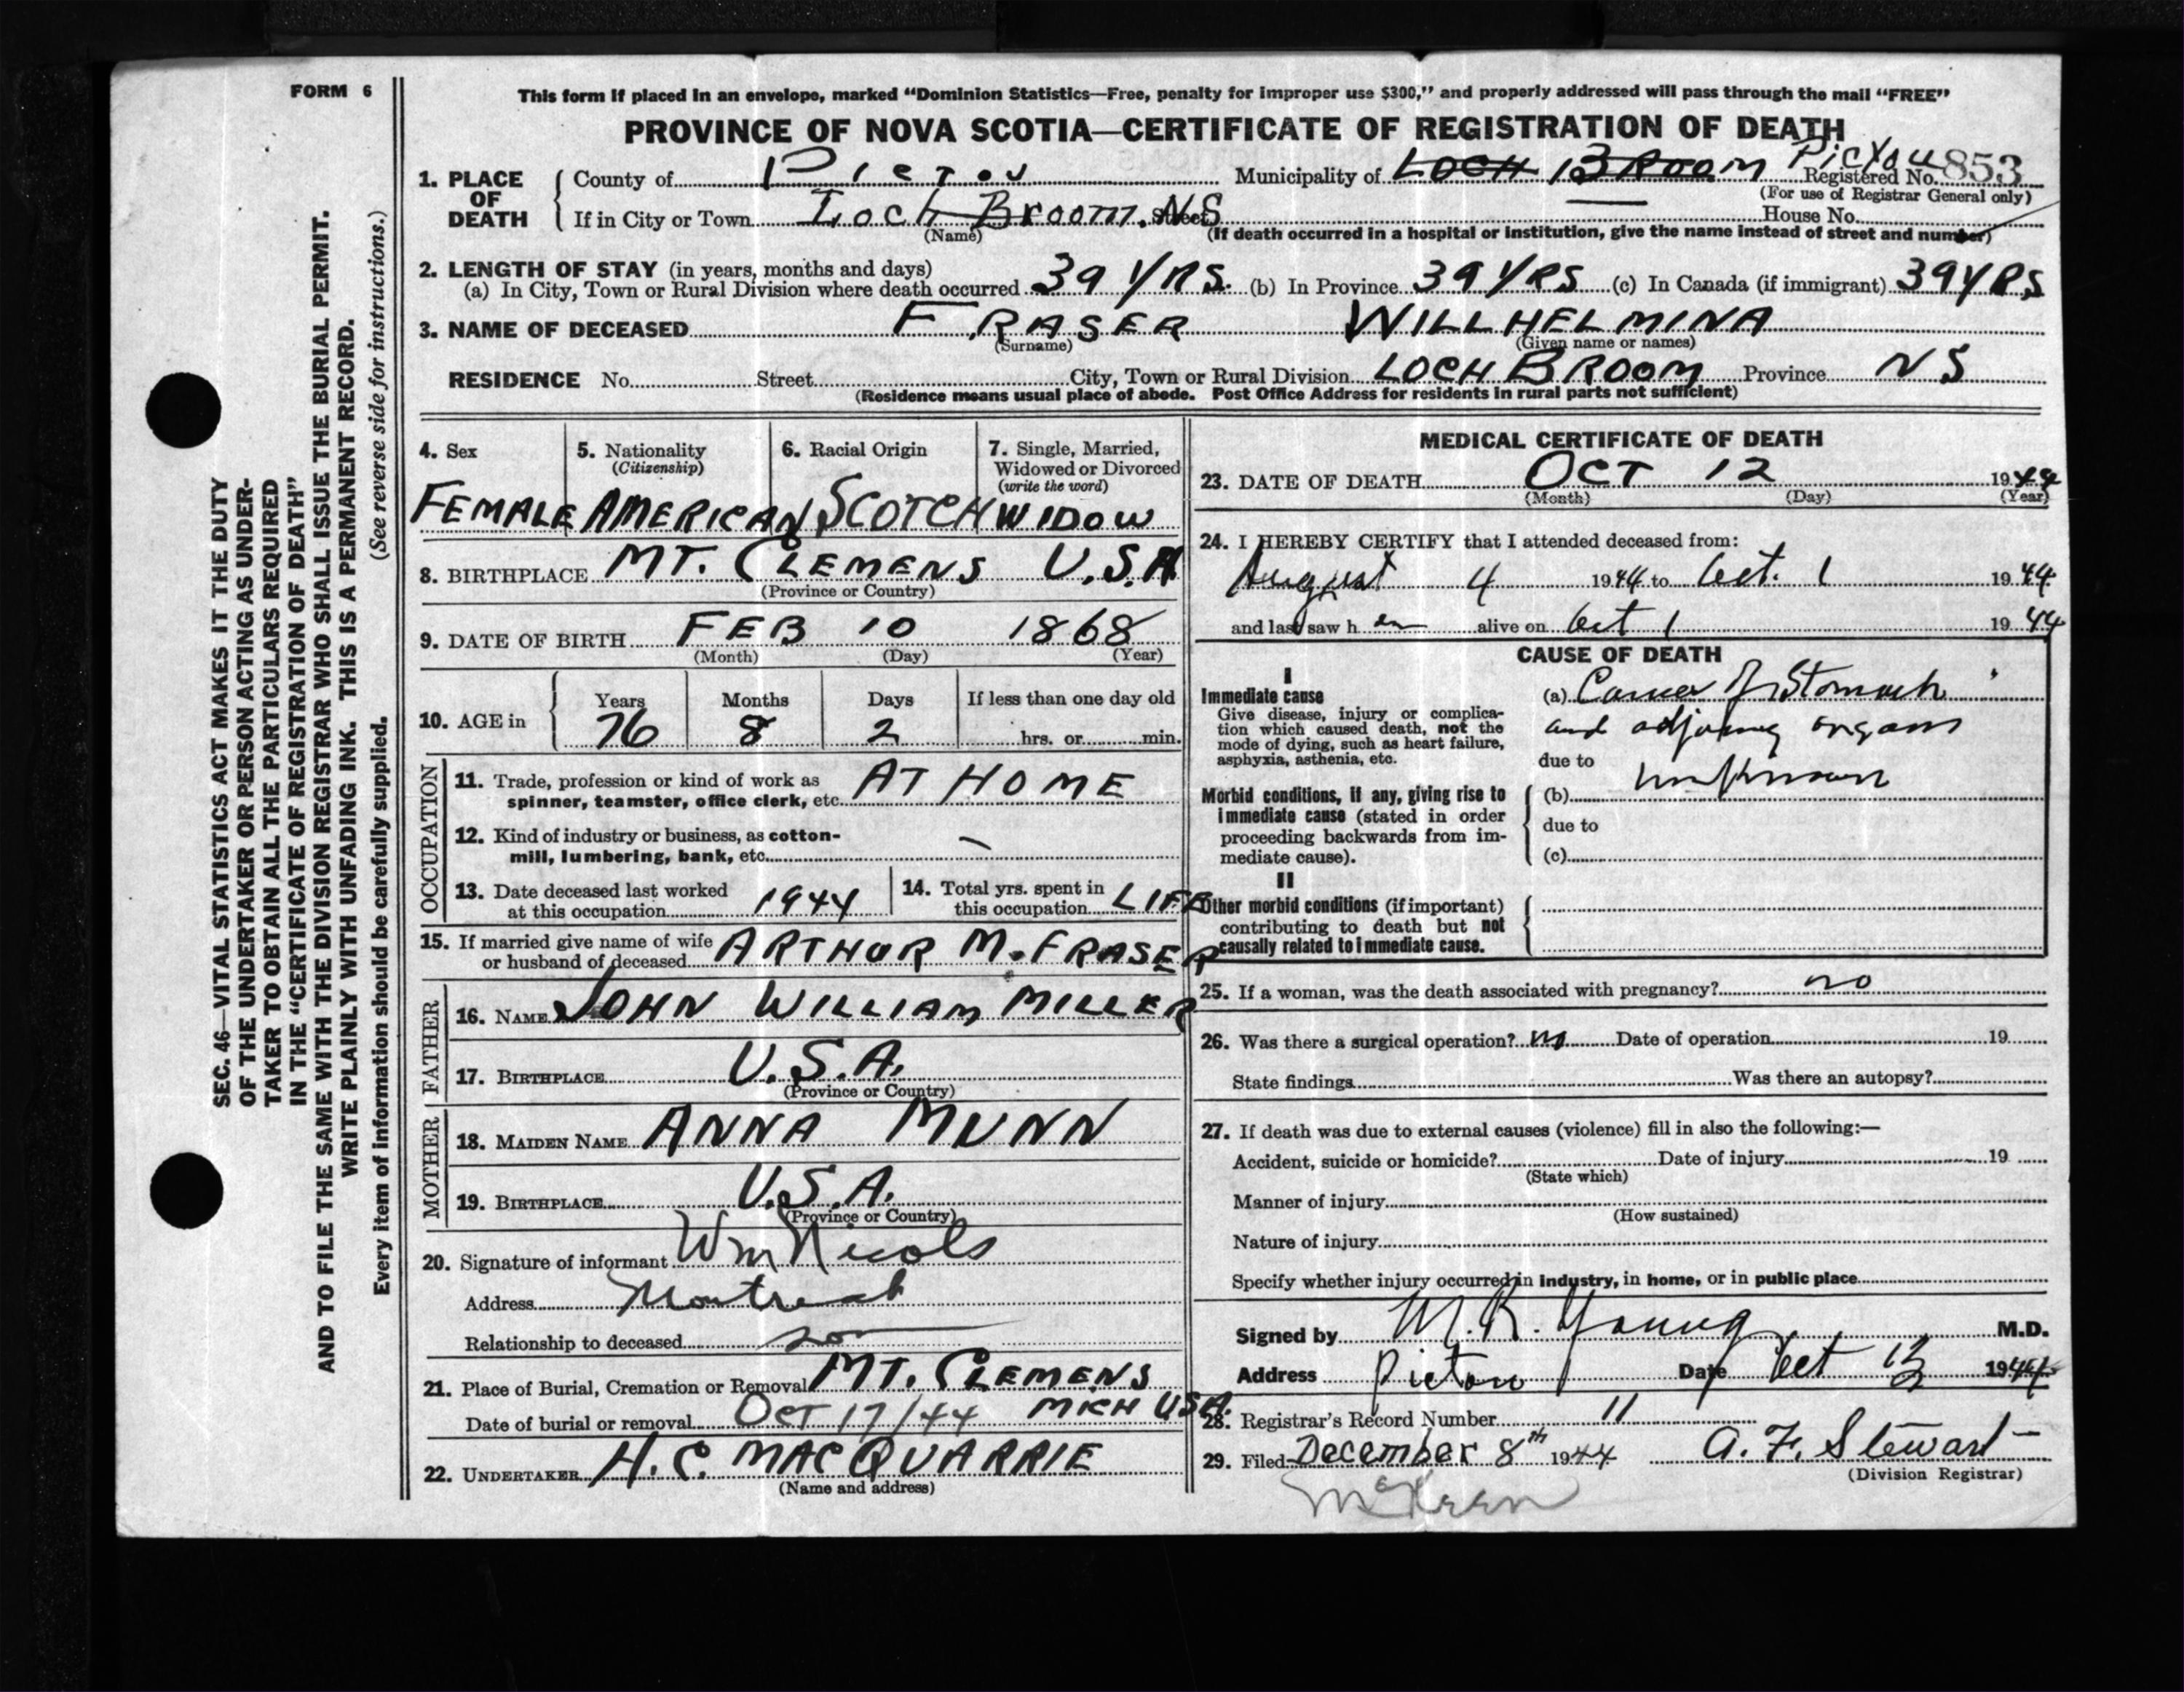 FORM 6
This form if placed in an envelope, marked "Dominion Statistics—Free, penalty for improper use $300," and properly addressed will pass through the mail "FREE"
PROVINCE OF NOVA SCOTIA—CERTIFICATE OF REGISTRATION OF DEATH
1. PLACE OF DEATH
County of PICTOU Municipality of LOCH BROOM Pictou Registered No. 853
(For use of Registrar General only)
If in City or Town Loch Broom. N.S Street House No.
(Name) (If death occurred in a hospital or institution, give the name instead of street and number)
2. LENGTH OF STAY (in years, months and days)
(a) In City, Town or Rural Division where death occurred 39 YRS. (b) In Province 39 YRS (c) In Canada (if immigrant) 39 YRS
3. NAME OF DECEASED FRASER WILLHELMINA
(Surname) (Given name or names)
RESIDENCE No. Street City, Town or Rural Division LOCH BROOM Province N S
(Residence means usual place of abode. Post Office Address for residents in rural parts not sufficient)
4. Sex 5. Nationality 6. Racial Origin 7. Single, Married,
(Citizenship) Widowed or Divorced
(write the word)
FEMALE AMERICAN SCOTCH WIDOW
8. BIRTHPLACE MT. CLEMENS U.S.A
(Province or Country)
9. DATE OF BIRTH FEB 10 1868
(Month) (Day) (Year)
10. AGE in Years Months Days If less than one day old
76 8 2 hrs. or min.
OCCUPATION
11. Trade, profession or kind of work as
spinner, teamster, office clerk, etc. AT HOME
12. Kind of industry or business, as cotton-
mill, lumbering, bank, etc. —
13. Date deceased last worked
at this occupation 1944
14. Total yrs. spent in
this occupation LIFE
15. If married give name of wife
or husband of deceased ARTHUR M. FRASER
FATHER
16. NAME JOHN WILLIAM MILLER
17. BIRTHPLACE U.S.A.
(Province or Country)
MOTHER
18. MAIDEN NAME ANNA MUNN
19. BIRTHPLACE U.S.A.
(Province or Country)
20. Signature of informant Wm Nicols
Address Montreal
Relationship to deceased son
21. Place of Burial, Cremation or Removal MT. CLEMENS
Date of burial or removal OCT 17/44 MICH USA.
22. UNDERTAKER H. C. MACQUARRIE
(Name and address)
MEDICAL CERTIFICATE OF DEATH
23. DATE OF DEATH OCT 12 1944
(Month) (Day) (Year)
24. I HEREBY CERTIFY that I attended deceased from:
August 4 1944 to Oct. 1 1944
and last saw h er alive on Oct 1 1944
CAUSE OF DEATH
I
Immediate cause
Give disease, injury or complica-
tion which caused death, not the
mode of dying, such as heart failure,
asphyxia, asthenia, etc.
(a) Cancer of Stomach
and adjoining organs
due to
unknown
Morbid conditions, if any, giving rise to
immediate cause (stated in order
proceeding backwards from im-
mediate cause).
(b)
due to
(c)
II
Other morbid conditions (if important)
contributing to death but not
causally related to immediate cause.
25. If a woman, was the death associated with pregnancy? no
26. Was there a surgical operation? no Date of operation 19
State findings Was there an autopsy?
27. If death was due to external causes (violence) fill in also the following:—
Accident, suicide or homicide? Date of injury 19
(State which)
Manner of injury
(How sustained)
Nature of injury
Specify whether injury occurred in industry, in home, or in public place
Signed by M. R. Young M.D.
Address Pictou Date Oct 13 1944
28. Registrar's Record Number 11
29. Filed December 8th 1944 A. F. Stewart
(Division Registrar)
McKeen
SEC. 46—VITAL STATISTICS ACT MAKES IT THE DUTY
OF THE UNDERTAKER OR PERSON ACTING AS UNDER-
TAKER TO OBTAIN ALL THE PARTICULARS REQUIRED
IN THE "CERTIFICATE OF REGISTRATION OF DEATH"
AND TO FILE THE SAME WITH THE DIVISION REGISTRAR WHO SHALL ISSUE THE BURIAL PERMIT.
WRITE PLAINLY WITH UNFADING INK. THIS IS A PERMANENT RECORD.
Every item of information should be carefully supplied. (See reverse side for instructions.)